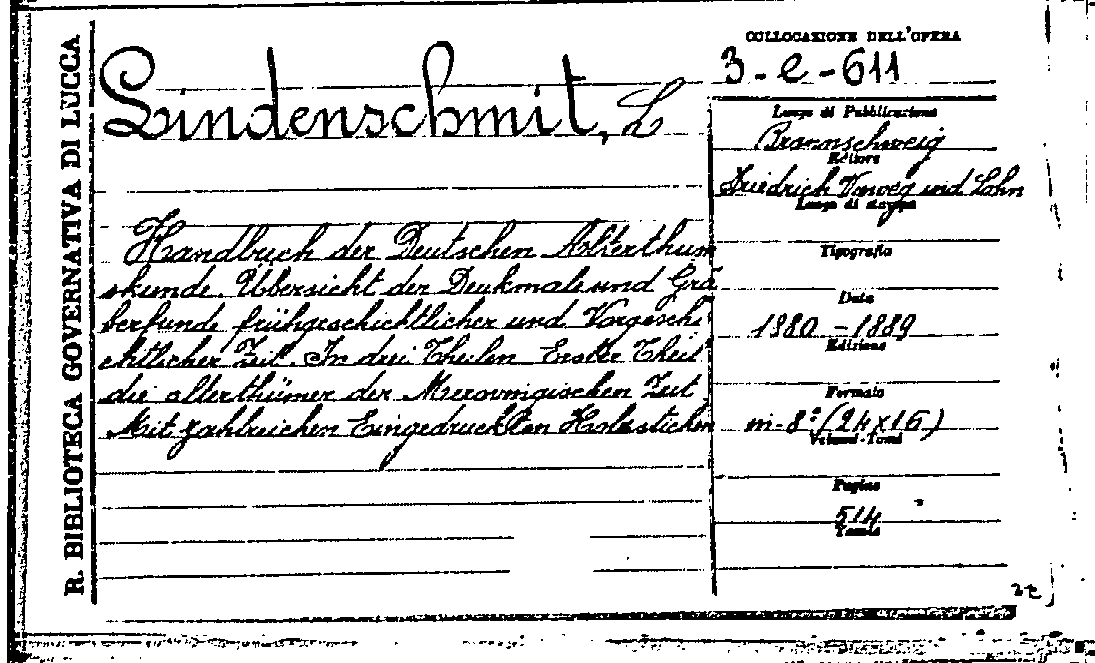 R. BIBLIOTECA GOVERNATIVA DI LUCCA
Lindenschmit, L
Handbuch der Deutschen Alterthum
skunde. Übersicht der Denkmale und Grä
berfunde frühgeschichtlicher und Vorgeschi
chtlicher Zeit. In drei Theilen Erster Theil
die alterthümer der Merovingischen Zeit
Mit zahlreichen Eingedruckten Holzstichen
COLLOCAZIONE DELL'OPERA
3-e-611
Luogo di Pubblicazione
Braunschweig
Editore
Friedrich Vieweg und Sohn
Luogo di stampa
Tipografia
Data
1880-1889
Edizione
Formato
in-8° (24x16)
Volumi-Tomi
Pagine
514
Tavole